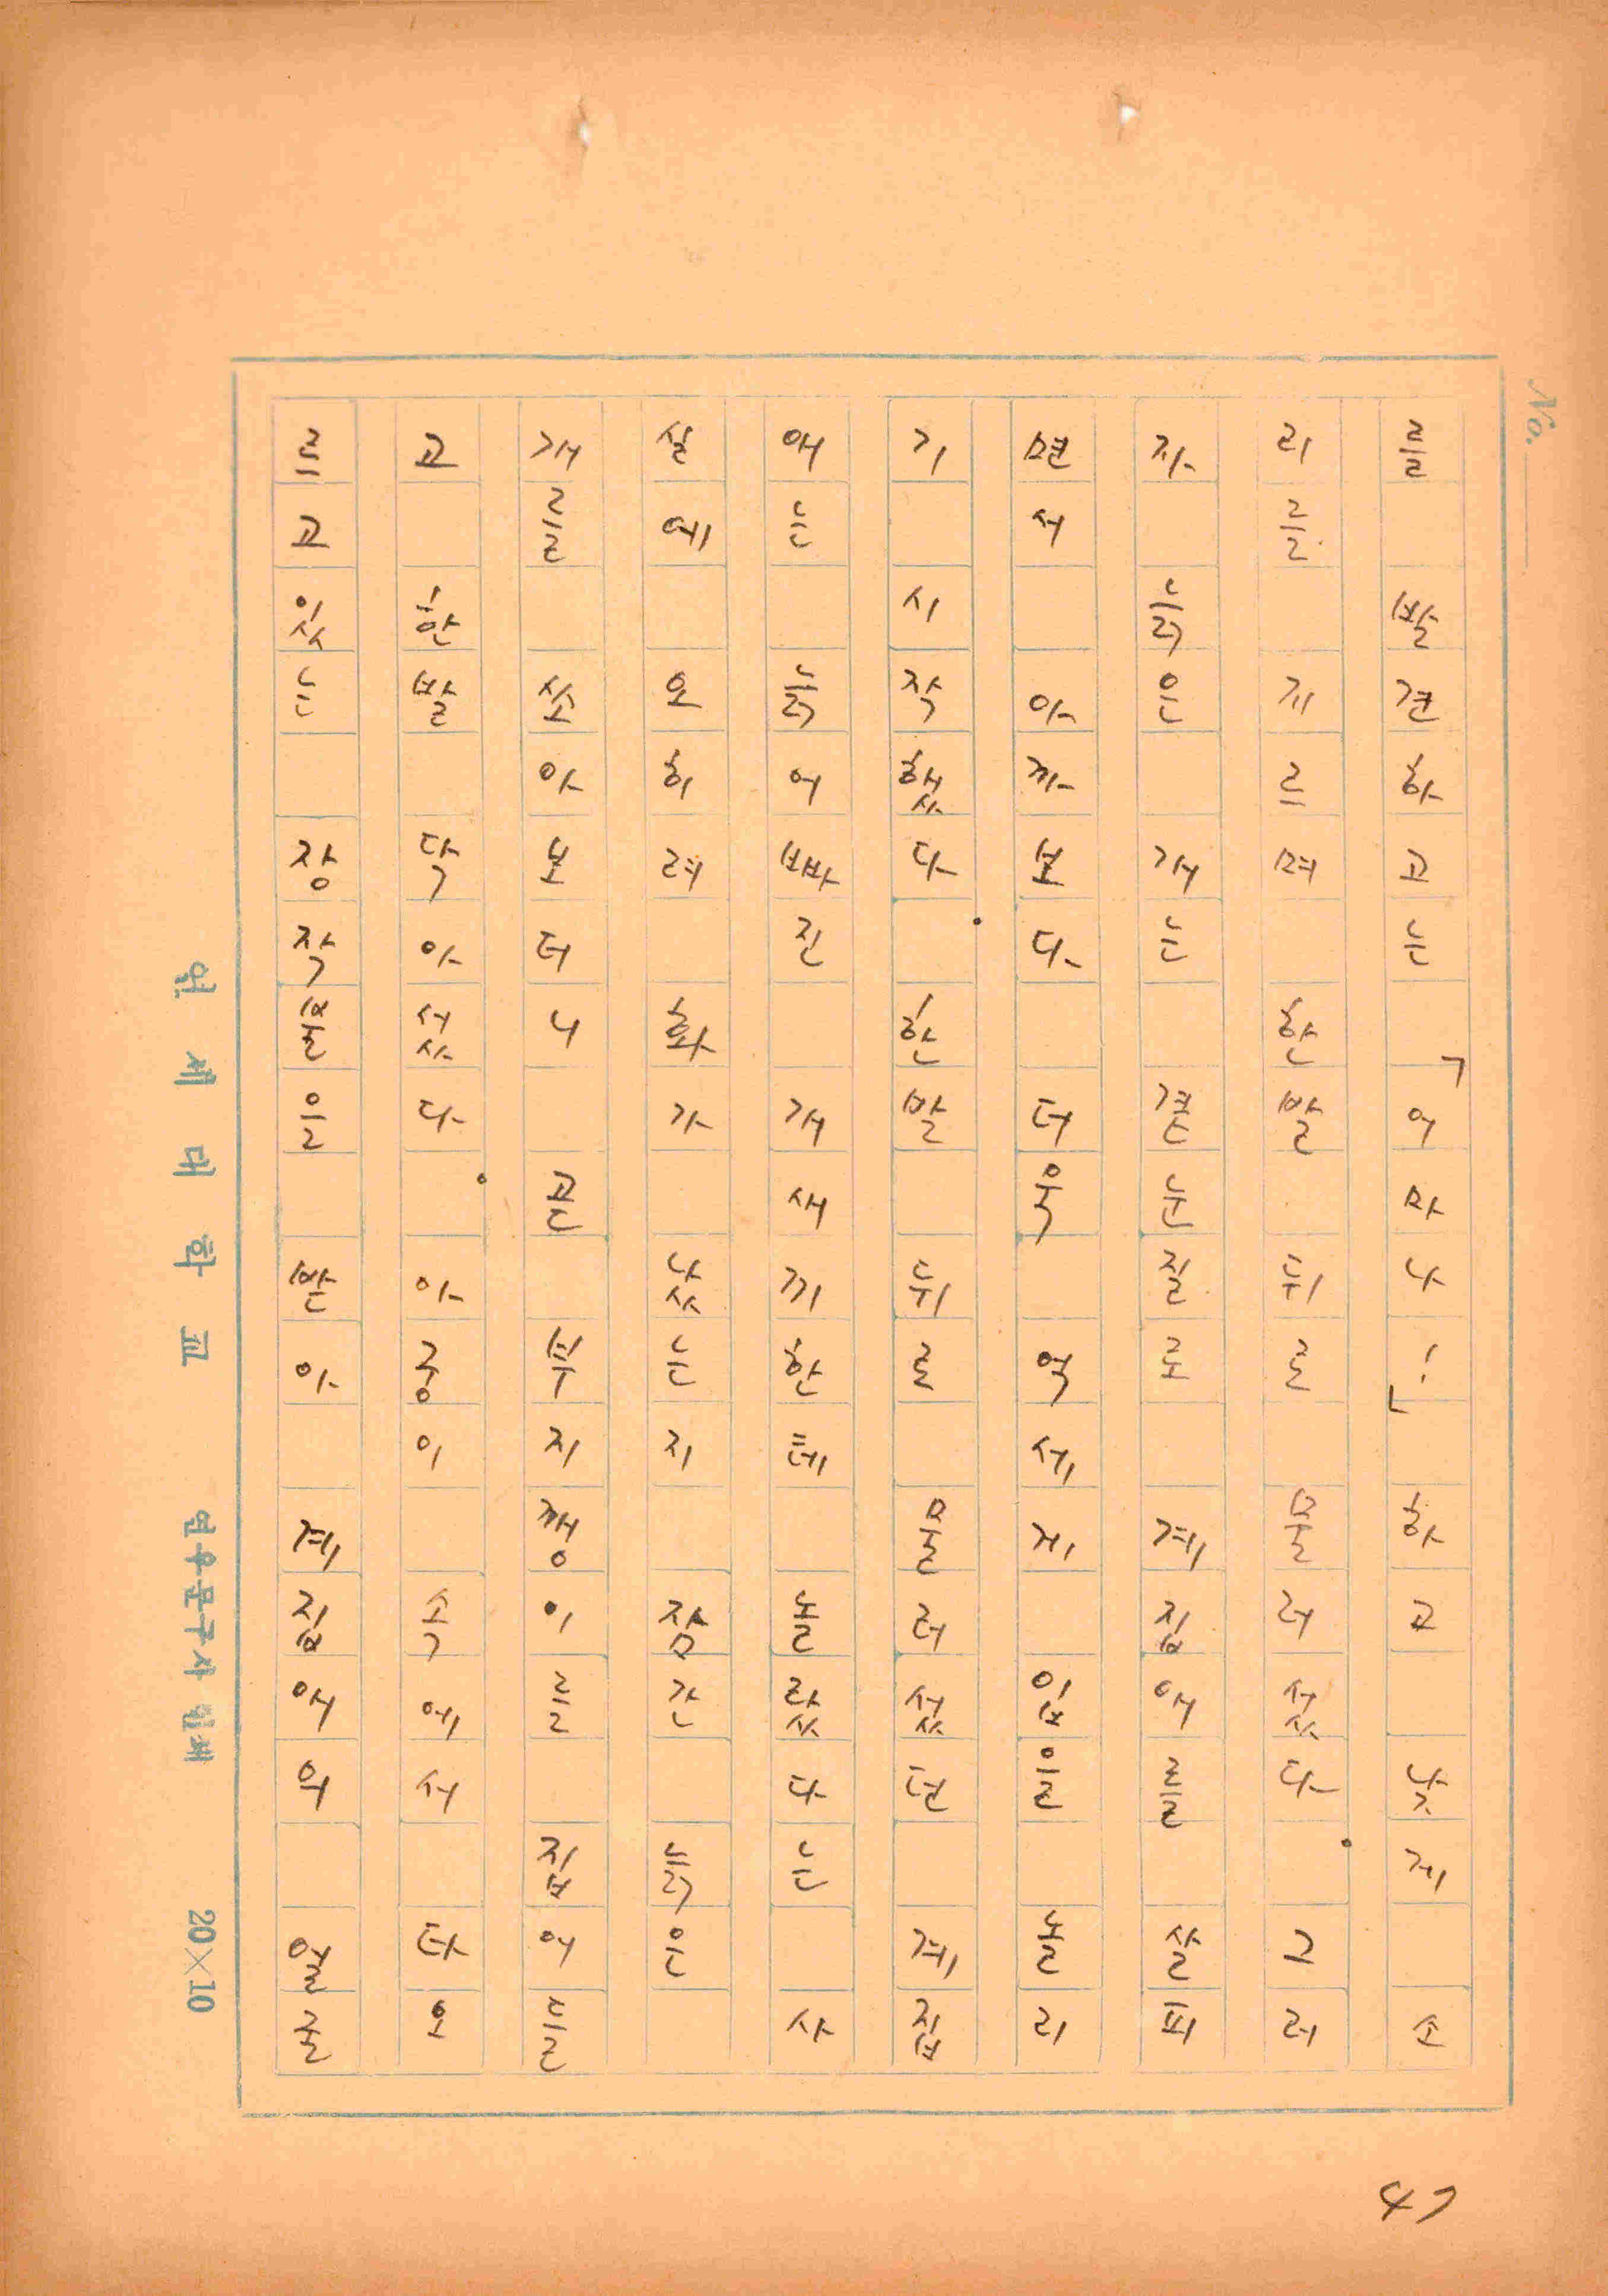 No.
를 발견하고는 「어마나!」하고 낮게 소
리를 지르며 한발 뒤로 물러섰다. 그러
자 늙은 개는 곁눈질로 계집애를 살피
면서 아까보다 더욱 억세게 입을 놀리
기 시작했다. 한발 뒤로 물러섰던 계집
애는 늙어빠진 개새끼한테 놀랐다는 사
실에 오히려 화가 났는지 잠간 늙은
개를 쏘아보더니 곧 부지깽이를 집어들
고 한발 닥아섰다. 아궁이 속에서 타오
르고 있는 장작불을 받아 계집애의 얼굴
연세대학교 연우문구사 20×10
47